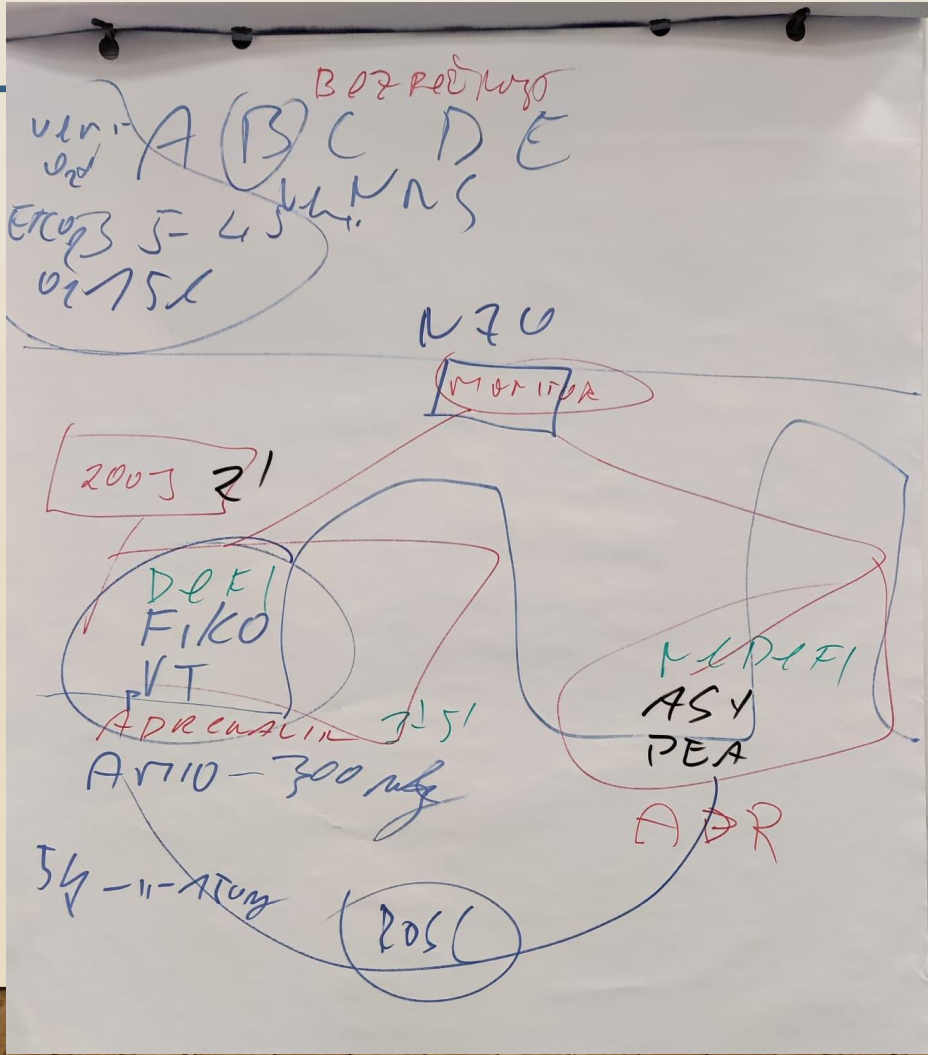 BEZPEČNOST
A B C D E
O2
ETCO2 35-45
O2 15l
NZO
MONITOR
200J 2'
DeFI
FIKO
VT
ADRENALIN 3'-5'
AMIO - 300 mg
NeDeFI
ASY
PEA
ADR
5y -"- 150mg
ROSC